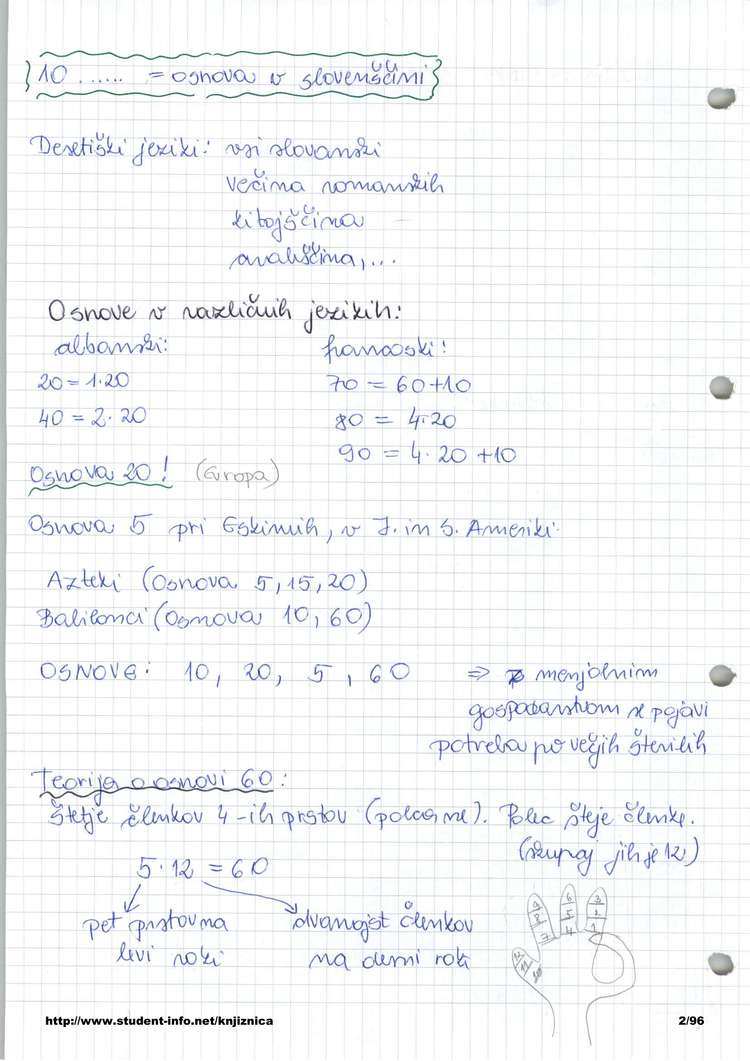 10 ...... = osnova v slovenščini
Desetiški jeziki: vsi slovanski
večina romanskih
kitajščina
arabščina, ...
Osnove v različnih jezikih:
albanski: francoski:
20 = 1·20 70 = 60+10
40 = 2·20 80 = 4·20
90 = 4·20 +10
Osnova 20! (Evropa)
Osnova 5 pri Eskimih, v J. in S. Ameriki.
Azteki (Osnova 5, 15, 20)
Babilonci (Osnova 10, 60)
OSNOVE: 10, 20, 5, 60 ⇒ z menjalnim
gospodarstvom se pojavi
potreba po večjih številih
Teorija o osnovi 60:
Štetje členkov 4-ih prstov (palca ne). Palec šteje členke.
(skupaj jih je 12)
5·12 = 60
pet prstov na dvanajst členkov
levi roki na desni roki
9 6 3
8 5 2
7 4 1
12
11
10
http://www.student-info.net/knjiznica 2/96